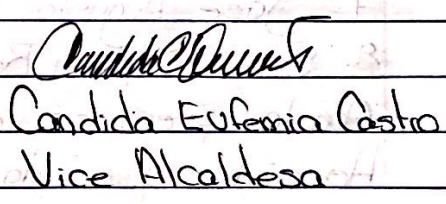 Candida Eufemia Castro
Vice Alcaldesa